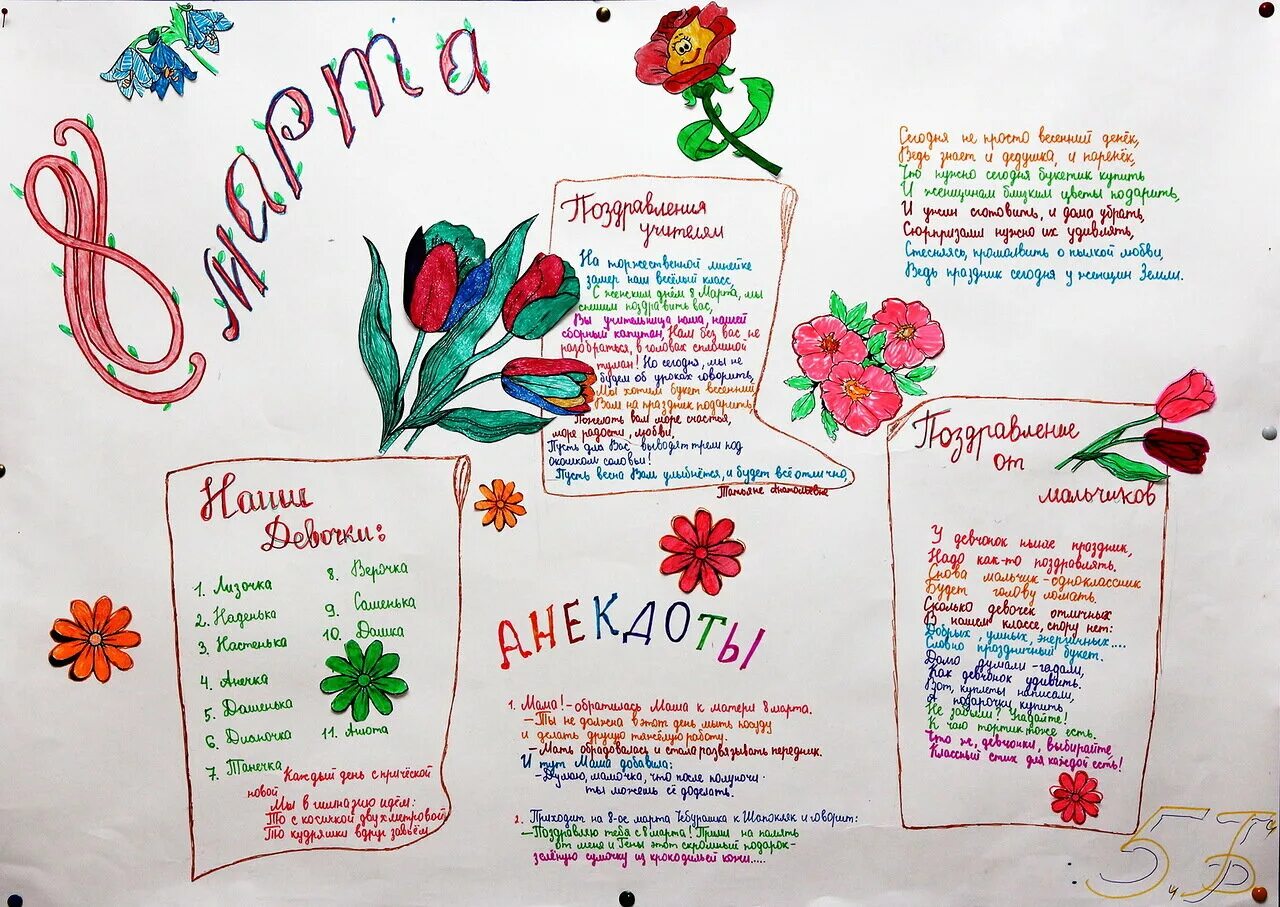 8 марта
Сегодня не просто весенний денёк,
Ведь знает и дедушка, и паренёк,
Что нужно сегодня букетик купить
И женщинам близким цветы подарить,
И ужин сготовить, и дома убрать,
Сюрпризами нужно их удивлять,
Стесняясь, промолвить о пылкой любви,
Ведь праздник сегодня у женщин Земли.
Поздравления
учителям
На торжественной линейке
замер наш весёлый класс,
С женским днём 8 Марта, мы
спешим поздравить вас,
Вы учительница наша, нашей
сборный капитан, Нам без вас не
разобраться, в головах сплошной
туман! Но сегодня, мы не
будем об уроках говорить,
Мы хотим букет весенний
Вам на праздник подарить,
Пожелать вам море счастья,
море радости, любви,
Пусть для Вас выводят трели под
окошком соловьи!
Пусть весна Вам улыбнётся, и будет всё отлично,
Татьяне Анатольевне
Наши
Девочки:
1. Лизочка
2. Наденька
3. Настенька
4. Анечка
5. Дашенька
6. Дианочка
7. Танечка
8. Верочка
9. Сашенька
10. Дашка
11. Анюта
Каждый день с причёской
новой
Мы в гимназию идём:
То с косичкой двухметровой
То кудряшки вдруг завьём
АНЕКДОТЫ
1. Мама! - обратилась Маша к матери 8 марта.
- Ты не должна в этот день мыть посуду
и делать другую тяжёлую работу.
- Мать обрадовалась и стала развязывать передник.
И тут Маша добавила:
- Думаю, мамочка, что после полуночи
ты можешь её доделать.
2. Приходит на 8-ое марта Чебурашка к Шапокляк и говорит:
- Поздравляю тебя с 8 марта! Прими на память
от меня и Гены этот скромный подарок-
зелёную сумочку из крокодильей кожи.....
Поздравление
от
мальчиков
У девчонок ныне праздник,
Надо как-то поздравлять.
Снова мальчик-одноклассник
Будет голову ломать.
Сколько девочек отличных
В нашем классе, спору нет:
Добрых, умных, энергичных....
Словно праздничный букет.
Дома думали-гадали,
Как девчонок удивить.
Вот, куплеты написали,
А подарочки купить
Не забыли? Угадайте!
К чаю тортик тоже есть.
Что ж, девчонки, выбирайте,
Классный стих для каждой есть!
5 "Б"